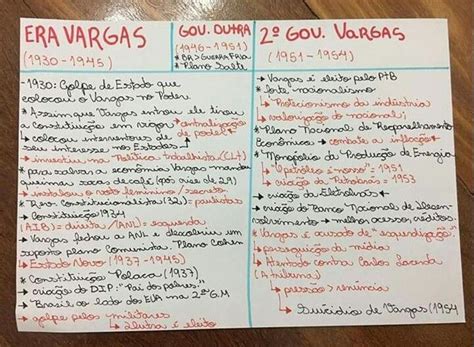 ERA VARGAS
(1930-1945)
-1930: Golpe de Estado que
colocou o Vargas no Poder.
* Assim que Vargas entrou ele tirou
a Constituição em vigor, → centralização de poder
→ colocou interventores de
seu interesse nos Estados
→ investiu na Política trabalhista (CLT)
* para salvar a economia Vargas mandou
queimar sacas de café (pós crise de 29)
→ instalou o voto feminino/secreto
* Rev. Constitucionalista (32): → paulistas
* Constituição 1934
(AIB) = direita / (ANL) = esquerda
→ Vargas fechou a ANL e descobriu um
suposto plano Comunista: Plano Cohen
↳ Estado Novo (1937-1945)
* Constituição Polaca (1937)
→ criação do DIP: "Pai dos pobres"
→ Brasil ao lado dos EUA na 2ª G.M
→ golpe pelos militares
↳ Dutra é eleito
GOV. DUTRA
(1946-1951)
* BR > GUERRA FRIA
* Plano Salte
2º GOV. VARGAS
(1951-1954)
→ Vargas é eleito pelo PTB
* forte nacionalismo
↳ Protecionismo da indústria
↳ valorização do nacional;
* Plano Nacional de Reaparelhamento
Econômico: → combate a inflação
* Monopólio da Produção de Energia
↳ "O petróleo é nosso" = 1951
↳ criação da Petrobrás = 1953
→ criação da Eletrobrás
→ criação do Banco Nacional de Desen-
volvimento → melhor acesso, créditos.
* Vargas é acusado de "esquerdização"
↳ perseguição da mídia
↳ Atentado contra Carlos Lacerda
(A tribuna)
↳ pressão > renúncia
↳ Suicídio de Vargas (1954